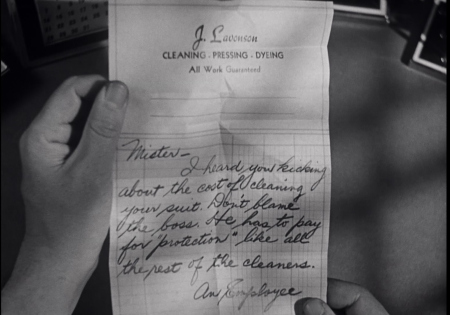 J. Lavonson
CLEANING - PRESSING - DYEING
All Work Guaranteed
Mister—
I heard you kicking
about the cost of cleaning
your suit. Don't blame
the boss. He has to pay
for "protection" like all
the rest of the cleaners.
An Employee